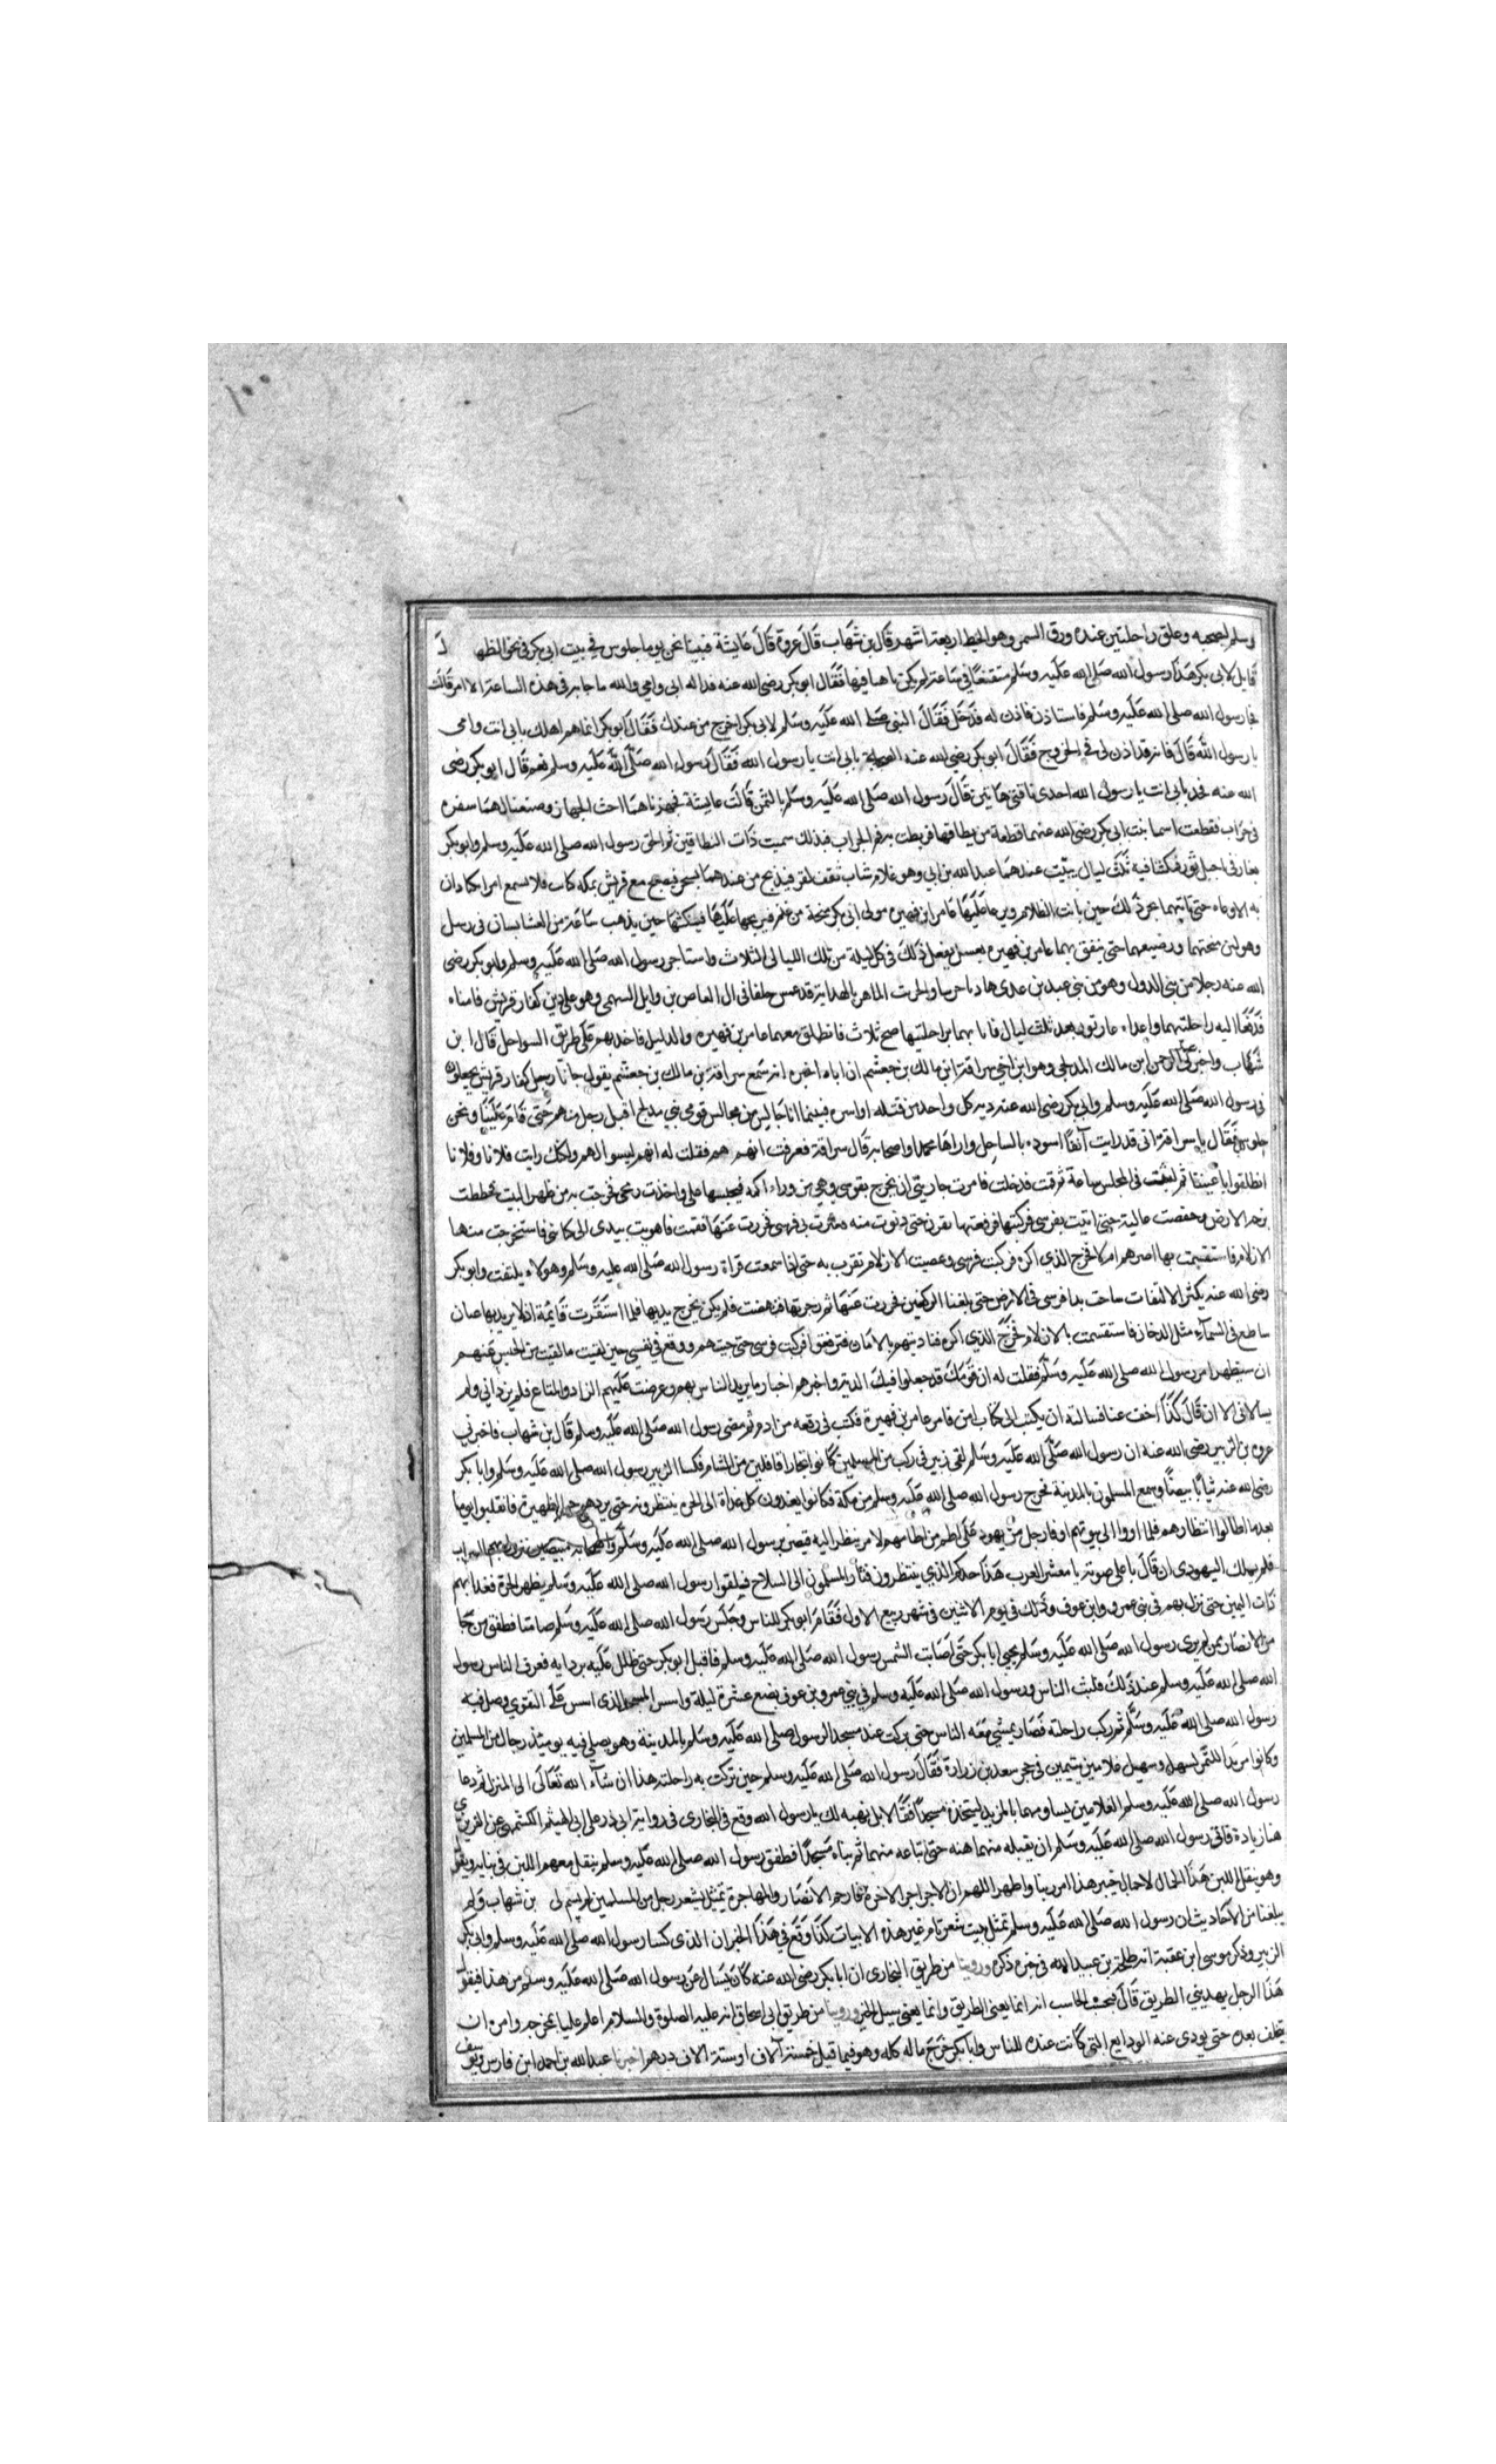 ١٠٠
وسلم ليصحبه وعلق راحلتين عنده ورق السمر وهو الخبط اربعة اشهر قال بن شهاب قال عروة قال عايشة فبينا نحن يوما جلوس في بيت ابى بكر فى نحر الظهيرة
قايل لابى بكر هذا رسول الله صلى الله عليه وسلم متقنعا فى ساعة لم يكن ياتينا فيها فقال ابو بكر رضى الله عنه فداله ابى وامى والله ما جابه فى هذه الساعة الا امر قالت
فجا رسول الله صلى الله عليه وسلم فاستاذن فاذن له فدخل فقال النبى صلى الله عليه وسلم لابى بكر اخرج من عندك فقال ابو بكر انما هم اهلك بابى انت وامى
يا رسول الله قال فانه قد اذن لى فى الخروج فقال ابو بكر رضى الله عنه الصحابة بابى انت يا رسول الله فقال رسول الله صلى الله عليه وسلم نعم قال ابو بكر رضى
الله عنه فخذ بابى انت يا رسول الله احدى ناقتى هاتين قال رسول الله صلى الله عليه وسلم بالثمن قالت عايشة فجهزناهما احث الجهاز وصنعنا لهما سفره
فى جراب فقطعت اسما بنت ابى بكر رضى الله عنهما قطعة من نطاقها فربطت به فم الجراب فبذلك سميت ذات النطاقين ثم لحق رسول الله صلى الله عليه وسلم وابو بكر
بغار فى اجبل ثور فمكثا فيه ثلث ليال يبيت عندهما عبد الله بن ابى وهو غلام شاب ثقف لقن فيدلج من عندهما بسحر فيصبح مع قريش بمكه كاب فلا يسمع امرا يكادان
به الا وعاه حتى ياتيهما بخبر ذلك حين يانت الظلام ويرعا عليهما عامر ابن فهيره مولى ابى بكر منحة من غنم فيريحها عليهما فيتكثهما حين يذهب ساعة من العشا بيسان فى رسل
وهو لبن منحتهما ورضيعهما حتى ينفق بهما عامر بن فهيره بعسل يفعل ذلك فى كل ليلة من تلك الليالى الثلاث واستاجر رسول الله صلى الله عليه وسلم وابو بكر رضى
الله عنه رجلا من بنى الدول وهو من بنى عبد بن عدى هاديا حرسا والحرت الماهر بالهداية قد غمس حلفا فى ال العاص بن وايل السهمى وهو على دين كفار قريش فامناه
فدفعا اليه راحلتيهما واعداه غار ثور بعد ثلث ليال فاتا بهما براحلتيهما صبح ثلاث فانطلق معهما عامر بن فهيره والدليل فاخد بهم على طريق السواحل قال ابن
شهاب واخبرنى عبد الرحمن ابن مالك المدلجى وهو ابن اخى سراقة ابن مالك بن جعشم ان اباه اخبره انه سمع سراقة بن مالك بن جعشم يقول جانا رسل كفار قريش يجعلون
فى رسول الله صلى الله عليه وسلم وابى بكر رضى الله عنه دية كل واحد من قتله او اسره فبينما انا جالس من مجالس قومى بنى مدلج اقبل رجل منهم حتى قام علينا ونحن
جلوس فقال يا سراقة انى قد رايت آنفا اسوده بالساحل واراها محمدا واصحابه قال سراقة فعرفت انهم هم فقلت له انهم ليسوا بهم ولكنك رايت فلانا وفلانا
انطلقوا باعيننا ثم لبثت فى المجلس ساعة ثم قمت فدخلت فامرت جاريتى ان تخرج بفرسى وهى من وراء اكمه فتحبسها على واخذت رمحى فخرجت به من ظهر البيت فحططت
بزجه الارض وخفضت عاليه حتى اتيت بفرسى فركبتها فرفعتها تقرب حتى دنوت منه فعثرت بى فرسى فخررت عنها فقمت فاهويت بيدى الى كنانتى فاستخرجت منها
الازلام فاستقسمت بها اضرهم ام لا فخرج الذى اكره فركبت فرسى وعصيت الازلام تقرب به حتى اذا سمعت قراة رسول الله صلى الله عليه وسلم وهو لا يلتفت وابو بكر
رضى الله عنه يكثر الالتفات ساخت يدا فرسى فى الارض حتى بلغتا الركبتين فخررت عنها ثم زجرتها فنهضت فلم يكن يخرج يديها فلما استقرت قايمة اذا لاثر يديها
ساطع فى السمآء مثل الدخان فاستقسمت بالازلام فخرج الذى اكره فناديتهم بالامان فوقفوا فركبت فرسى حتى جيتهم ووقع فى نفسى حين لقيت ما لقيت من الحبس عنهم
ان سيظهر امر رسول الله صلى الله عليه وسلم فقلت له ان قومك قد جعلوا فيك الدية واخبرهم اخبار ما يريد الناس بهم وعرضت عليهم الزاد والمتاع فلم يرزانى ولم
يسالانى الا ان قال كذا اخف عنا فسالته ان يكتب الى كتاب امن فامر عامر بن فهيرة فكتب فى رقعه من ادم ثم مضى رسول الله صلى الله عليه وسلم قال بن شهاب فاخبرنى
عروه بن الزبير رضى الله عنه ان رسول الله صلى الله عليه وسلم لقى زبير فى ركب من المسلمين كانوا تجارا قافلين من الشام فكسا الزبير رسول الله صلى الله عليه وسلم وابا بكر
رضى الله عنه ثيابا بيضا وسمع المسلمون بالمدينة بخرج رسول الله صلى الله عليه وسلم من مكة فكانوا يغدون كل غداة الى الحره ينتظرونه حتى يردهم حر الظهيرة فانقلبوا يوما
بعد ما اطالوا انتظارهم فلما اووا الى بيوتهم اوفا رجل من يهود على اطم من اطامهم لامر ينظر اليه فبصر برسول الله صلى الله عليه وسلم واصحابه مبيضين يزول بهم السراب
فلم يملك اليهودى ان قال باعلى صوته يا معشر العرب هذا جدكم الذى ينتظرون فثار المسلمون الى السلاح فيلقوا رسول الله صلى الله عليه وسلم بظهر الحرة فعدل بهم
ذات اليمين حتى نزل بهم فى بنى عمرو وابن عوف وذلك فى يوم الاثنين فى شهر ربيع الاول فقام ابو بكر للناس وجلس رسول الله صلى الله عليه وسلم صامتا فطفق من جا
من الانصار ممن لم يرى رسول الله صلى الله عليه وسلم يحيى ابا بكر حتى اصابت الشمس رسول الله صلى الله عليه وسلم فاقبل ابو بكر حتى ظلل عليه بردايه فعرف الناس رسول
الله صلى الله عليه وسلم عند ذلك فلبث الناس ورسول الله صلى الله عليه وسلم فى بنى عمرو بن عوف بضع عشرة ليلة واسس المسجد الذى اسس على التقوى وصلى فيه
رسول الله صلى الله عليه وسلم ثم ركب راحلته فصار يمشى معه الناس حتى بركت عند مسجد الرسول صلى الله عليه وسلم بالمدينة وهو يصلى فيه يوميذ رجال من المسلمين
وكانوا مربدا للتمر لسهل وسهيل غلامين يتيمين فى حجر سعد بن زرارة فقال رسول الله صلى الله عليه وسلم حين بركت به راحلته هذا ان شآء الله تعالى المنزل ثم دعا
رسول الله صلى الله عليه وسلم الغلامين يساومهما بالمربد ليتخذه مسجدا فقالا بل نهبه لك يا رسول الله وقع فى البخارى فى رواية ابى ذر على ابى الهيثم الكشميهنى عن الفربرى
هنا زيادة فاتى رسول الله صلى الله عليه وسلم ان يقبله منهما هبه حتى ابتاعه منهما ثم بناه مسجدا فطفق رسول الله صلى الله عليه وسلم ينقل معهم اللبن فى بنايه ويقول
وهو ينقل اللبن هذا الحمال لا حمال خيبر هذا ابر ربنا واطهر اللهم ان الاجر اجر الاخره فارحم الانصار والمهاجرة تمثل بشعر رجل من المسلمين لم يسم لى بن شهاب ولم
يبلغنا من الاحاديث ان رسول الله صلى الله عليه وسلم تمثل ببيت شعر تام غير هذه الابيات كذا وقع فى هذا الخبر ان الذى كسا رسول الله صلى الله عليه وسلم وابى بكر
الزبير وذكر موسى ابن عقبة انه طلحة بن عبيد الله فى خبره ذكره وروينا من طريق البخارى ان ابا بكر رضى الله عنه كان يسال عن رسول الله صلى الله عليه وسلم من هذا فيقول
هذا الرجل يهدينى الطريق قال فيحسب الحاسب انه انما يعنى الطريق وانما يعنى سبيل الخير وروينا من طريق ابى اسحاق انه عليه الصلوة والسلام اعلم عليا بمخرجه وامره ان
يخلف بعده حتى يودى عنه الودايع التى كانت عنده للناس وابا بكر خرج ماله كله وهو فيما قيل خمسة آلاف او ستة الاف درهم اخبرنا عبد الله بن احمد ابن فارس ويوسف